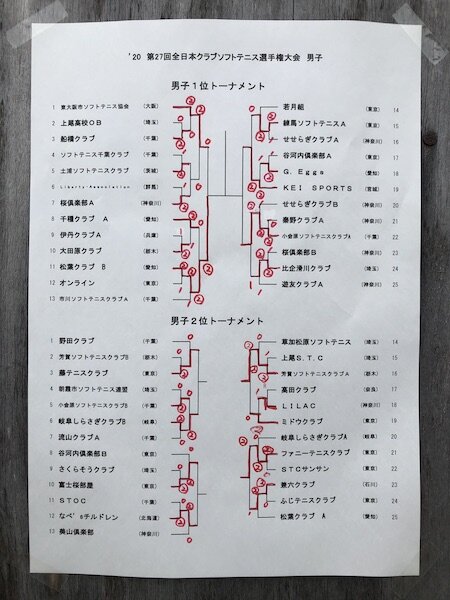 '20 第27回全日本クラブソフトテニス選手権大会 男子
男子1位トーナメント
1 東大阪市ソフトテニス協会 (大阪)
2 上尾高校OB (埼玉)
3 船橋クラブ (千葉)
4 ソフトテニス千葉クラブ (千葉)
5 土浦ソフトテニスクラブ (茨城)
6 Liberty-Association (群馬)
7 桜倶楽部A (神奈川)
8 千種クラブ A (愛知)
9 伊丹クラブA (兵庫)
10 大田原クラブ (栃木)
11 松葉クラブ B (愛知)
12 オンライン (東京)
13 市川ソフトテニスクラブA (千葉)
若月組 (東京) 14
練馬ソフトテニスA (東京) 15
せせらぎクラブA (神奈川) 16
谷河内倶楽部A (東京) 17
G.Eggs (愛知) 18
KEI SPORTS (宮城) 19
せせらぎクラブB (神奈川) 20
秦野クラブA (神奈川) 21
小倉原ソフトテニスクラブA (千葉) 22
桜倶楽部B (神奈川) 23
比企滑川クラブ (埼玉) 24
遊友クラブA (神奈川) 25
男子2位トーナメント
1 野田クラブ (千葉)
2 芳賀ソフトテニスクラブB (栃木)
3 藤テニスクラブ (東京)
4 朝霞市ソフトテニス連盟 (埼玉)
5 小倉原ソフトテニスクラブB (千葉)
6 岐阜しらさぎクラブB (岐阜)
7 流山クラブA (千葉)
8 谷河内倶楽部B (東京)
9 さくらそうクラブ (埼玉)
10 富士桜部屋 (東京)
11 STOC (千葉)
12 なべ'sチルドレン (北海道)
13 葵山倶楽部 (神奈川)
草加松原ソフトテニス (埼玉) 14
上尾S.T.C (埼玉) 15
芳賀ソフトテニスクラブA (栃木) 16
高田クラブ (奈良) 17
LILAC (神奈川) 18
ミドウクラブ (東京) 19
岐阜しらさぎクラブA (岐阜) 20
ファニーテニスクラブ (東京) 21
STCサンサン (東京) 22
兼六クラブ (石川) 23
ふじテニスクラブ (東京) 24
松葉クラブ A (愛知) 25